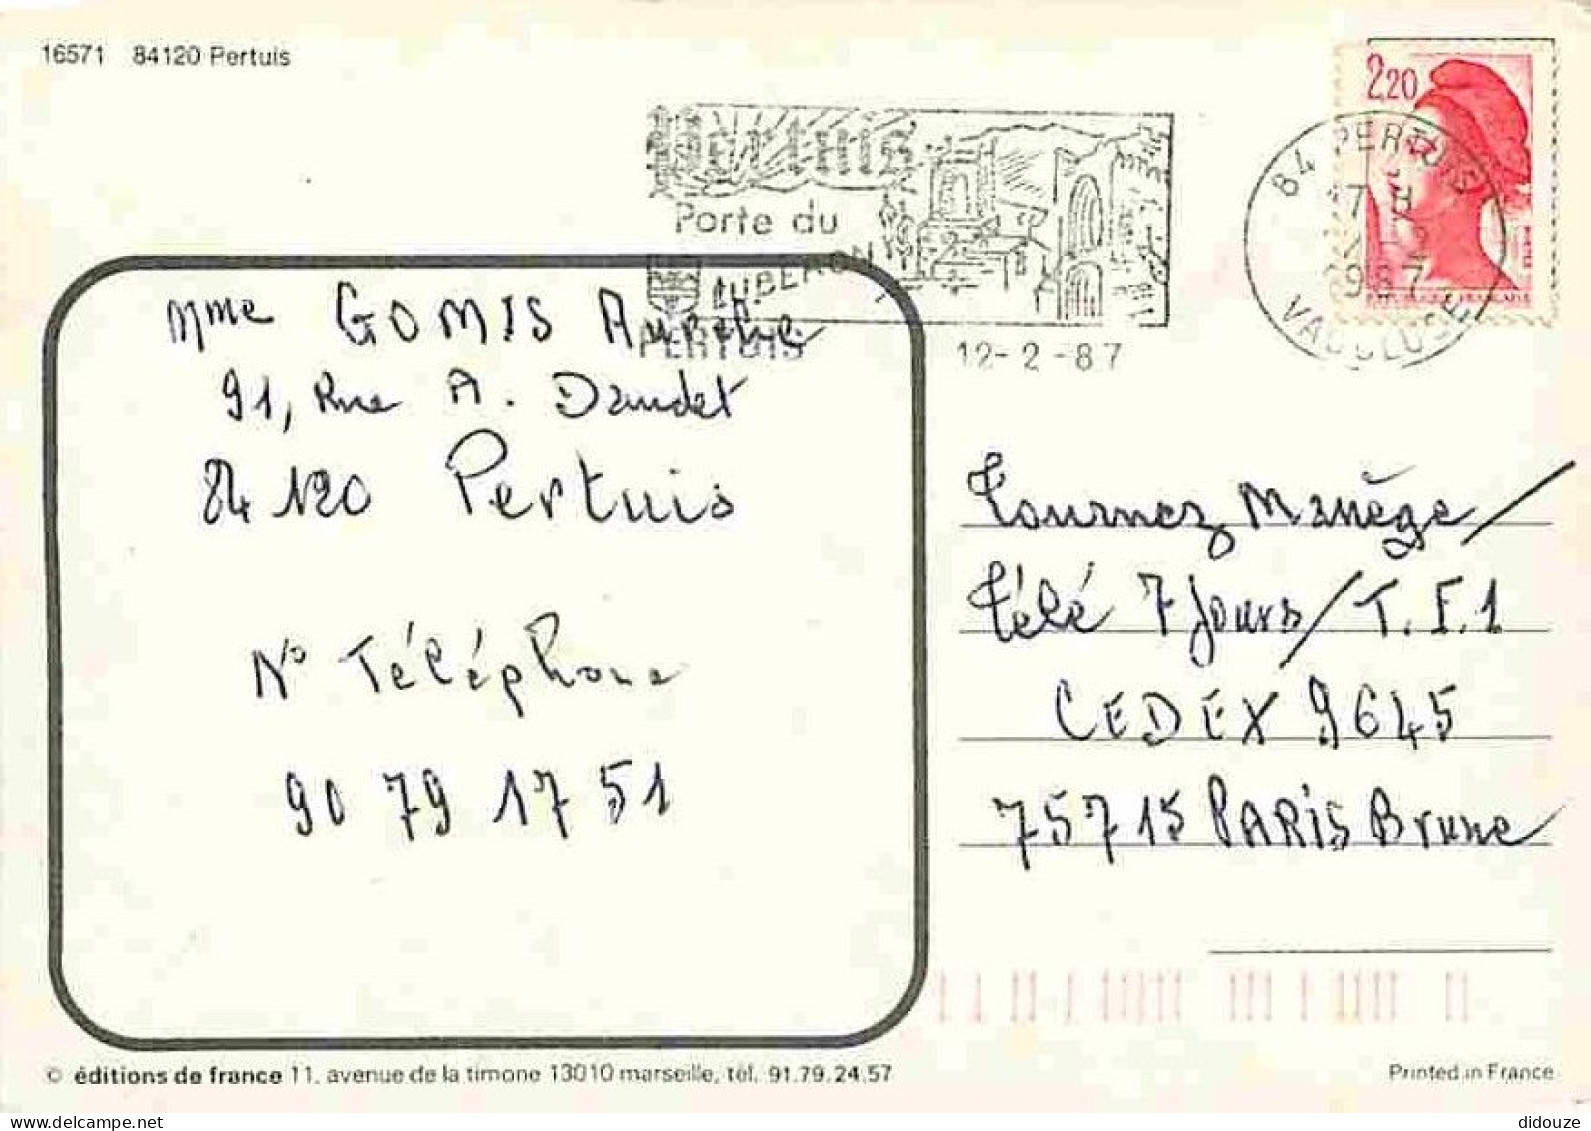 16571 84120 Pertuis
2,20
Pertuis
Porte du
LUBERON
PERTUIS
12-2-87
84 PERTUIS
17 H
12-2
1987
VAUCLUSE
REPUBLIQUE FRANÇAISE
Mme GOMIS
91, Rue A. Daudet
84120 Pertuis
N° Téléphone
90 79 17 51
Tournez Manège/
Télé 7 Jours/T.F.1
CEDEX 9645
75715 PARIS Brune
© éditions de france 11, avenue de la timone 13010 marseille, tél. 91.79.24.57
Printed in France
didouze